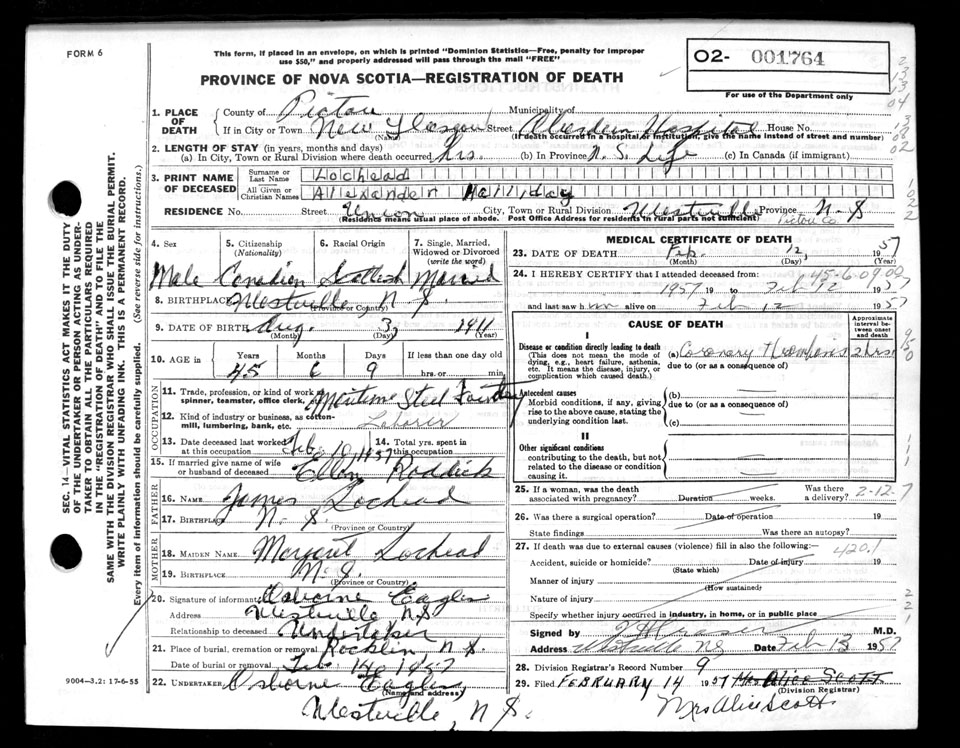 FORM 6
This form, if placed in an envelope, on which is printed "Dominion Statistics—Free, penalty for improper
use $50," and properly addressed will pass through the mail "FREE"
O2- 001764
PROVINCE OF NOVA SCOTIA—REGISTRATION OF DEATH
For use of the Department only
1. PLACE OF DEATH
County of Pictou Municipality of
If in City or Town New Glasgow Street Aberdeen Hospital House No.
(Name) (If death occurred in a hospital or institution, give the name instead of street and number)
2. LENGTH OF STAY (in years, months and days)
(a) In City, Town or Rural Division where death occurred hrs. (b) In Province N. S. Life (c) In Canada (if immigrant)
3. PRINT NAME OF DECEASED
Surname or Last Name Lochead
All Given or Christian Names Allexander Halliday
RESIDENCE No. Street Union City, Town or Rural Division Westville Province N-S
Pictou Co.
(Residence means usual place of abode. Post Office Address for residents in Rural parts not sufficient)
4. Sex
Male
5. Citizenship (Nationality)
Canadian
6. Racial Origin
Scottish
7. Single, Married, Widowed or Divorced (write the word)
Married
8. BIRTHPLACE Westville N. S.
(Province or Country)
9. DATE OF BIRTH Aug. 3, 1911
(Month) (Day) (Year)
10. AGE in Years Months Days If less than one day old
45 6 9 hrs. or min.
OCCUPATION
11. Trade, profession, or kind of work as spinner, teamster, office clerk, Maritime Steel Foundry
12. Kind of industry or business, as cotton-mill, lumbering, bank, etc. Laborer
13. Date deceased last worked at this occupation Feb 10, 1957
14. Total yrs. spent in this occupation
15. If married give name of wife or husband of deceased Ellen Roddick
FATHER
16. NAME James Lochead
17. BIRTHPLACE N. S.
(Province or Country)
MOTHER
18. MAIDEN NAME Margaret Lochead
19. BIRTHPLACE N. S.
(Province or Country)
20. Signature of informant Osborne Eagles
Address Westville N S
Relationship to deceased Undertaker
21. Place of burial, cremation or removal Rocklin, N. S.
Date of burial or removal Feb. 14, 1957
22. UNDERTAKER Osborne Eagles,
(Name and address)
Westville, N S.
MEDICAL CERTIFICATE OF DEATH
23. DATE OF DEATH Feb. 12, 1957
(Month) (Day) (Year)
24. I HEREBY CERTIFY that I attended deceased from:
45-6-09.02
1957 19 to Feb 12 1957
and last saw him alive on Feb 12 1957
CAUSE OF DEATH
Approximate interval between onset and death
I
Disease or condition directly leading to death
(This does not mean the mode of dying, e.g., heart failure, asthenia, etc. It means the disease, injury, or complication which caused death.)
(a) Coronary Thrombosis 2 hrs
due to (or as a consequence of)
Antecedent causes
Morbid conditions, if any, giving rise to the above cause, stating the underlying condition last.
(b)
due to (or as a consequence of)
(c)
II
Other significant conditions
contributing to the death, but not related to the disease or condition causing it.
25. If a woman, was the death associated with pregnancy? Duration weeks. Was there a delivery?
2-12-7
26. Was there a surgical operation? Date of operation 19
State findings Was there an autopsy?
27. If death was due to external causes (violence) fill in also the following:—
420.1
Accident, suicide or homicide? Date of injury 19
(State which)
Manner of injury
(How sustained)
Nature of injury
Specify whether injury occurred in industry, in home, or in public place
Signed by M.D.
Address Westville NS Date Feb 13 1957
28. Division Registrar's Record Number 9
29. Filed FEBRUARY 14 1957 Mrs Alice Scott
(Division Registrar)
Mrs Alice Scott
9004—3.2: 17-6-55
SEC. 14—VITAL STATISTICS ACT MAKES IT THE DUTY
OF THE UNDERTAKER OR PERSON ACTING AS UNDERTAKER TO OBTAIN ALL THE PARTICULARS REQUIRED
IN THE "REGISTRATION OF DEATH" AND TO FILE THE
SAME WITH THE DIVISION REGISTRAR WHO SHALL ISSUE THE BURIAL PERMIT.
WRITE PLAINLY WITH UNFADING INK. THIS IS A PERMANENT RECORD.
Every item of information should be carefully supplied. (See reverse side for instructions.)